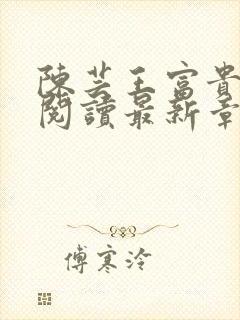 陳芸王富貴
閱讀最新章
傅寒泠